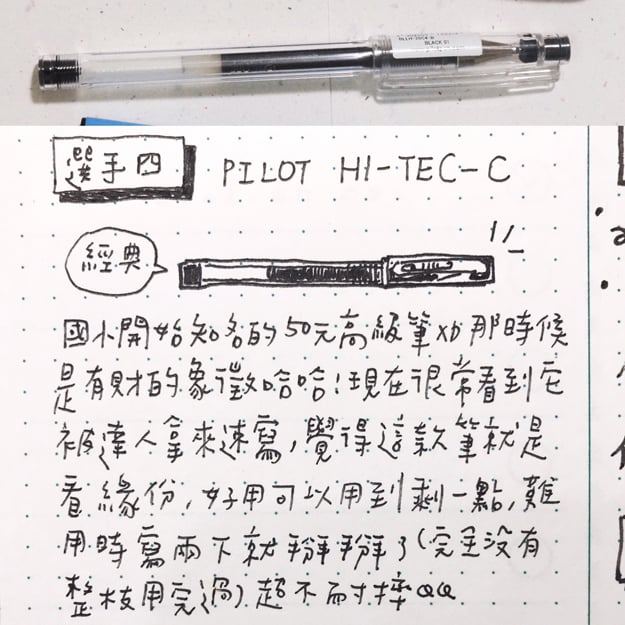 BLLH-20C4-B
BLACK 01
選手四 PILOT HI-TEC-C
經典
國小開始知名的50元高級筆XD 那時候
是有財的象徵哈哈!現在很常看到它
被達人拿來速寫,覺得這款筆就是
看緣份,好用可以用到剩一點,難
用時寫兩下就掰掰了(完全沒有
整枝用完過)超不耐摔QQ